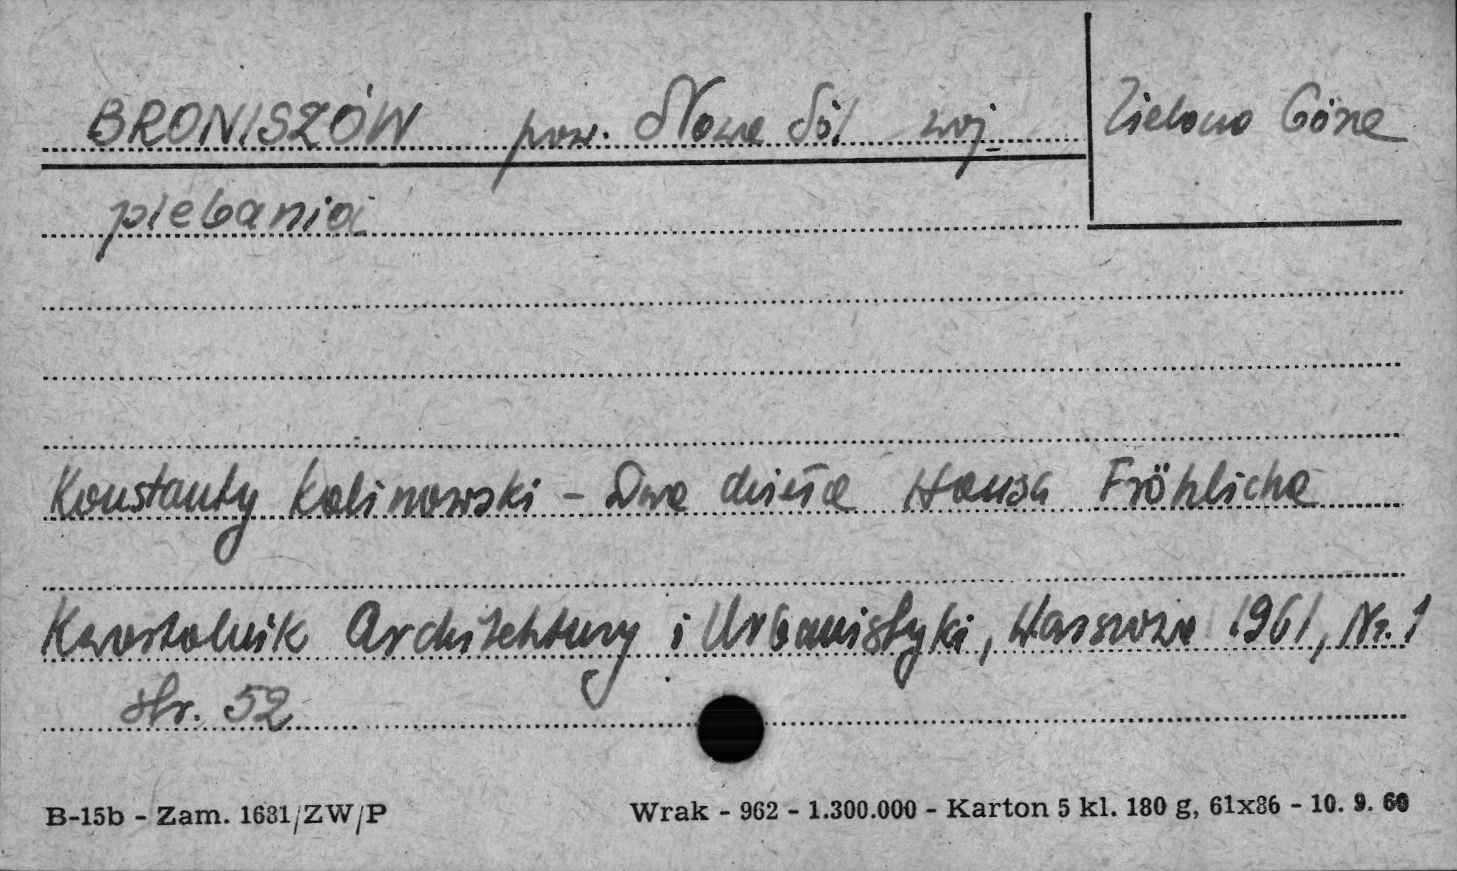 BRONISZÓW pow. Nowa Sól woj. Zielona Góra
plebania
Konstanty Kalinowski - Dwa dzieła Hansa Fröhlicha
Kwartalnik Architektury i Urbanistyki, Warszawa 1961, Nr. 1
str. 52
B-15b - Zam. 1681/ZW/P Wrak - 962 - 1.300.000 - Karton 5 kl. 180 g, 61x86 - 10. 9. 60